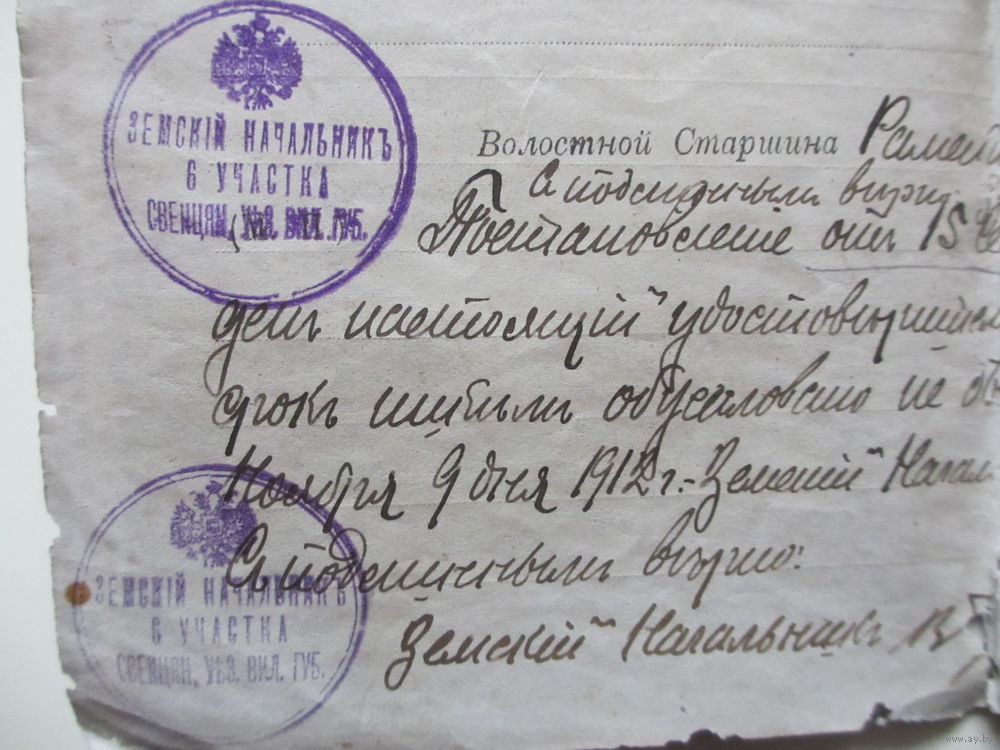 ЗЕМСКІЙ НАЧАЛЬНИКЪ
6 УЧАСТКА
СВЕНЦЯН. УѢЗ. ВИЛ. ГУБ.
Волостной Старшина
Съ подлиннымъ вѣрно
Постановленіе отъ 15
настоящій удостовѣ
срокъ обжаловано не
Ноября 9 дня 1912 г. Земскій Начал
Съ подлиннымъ вѣрно:
Земскій Начальникъ
ЗЕМСКІЙ НАЧАЛЬНИКЪ
6 УЧАСТКА
СВЕНЦЯН. УѢЗ. ВИЛ. ГУБ.
www.ay.by